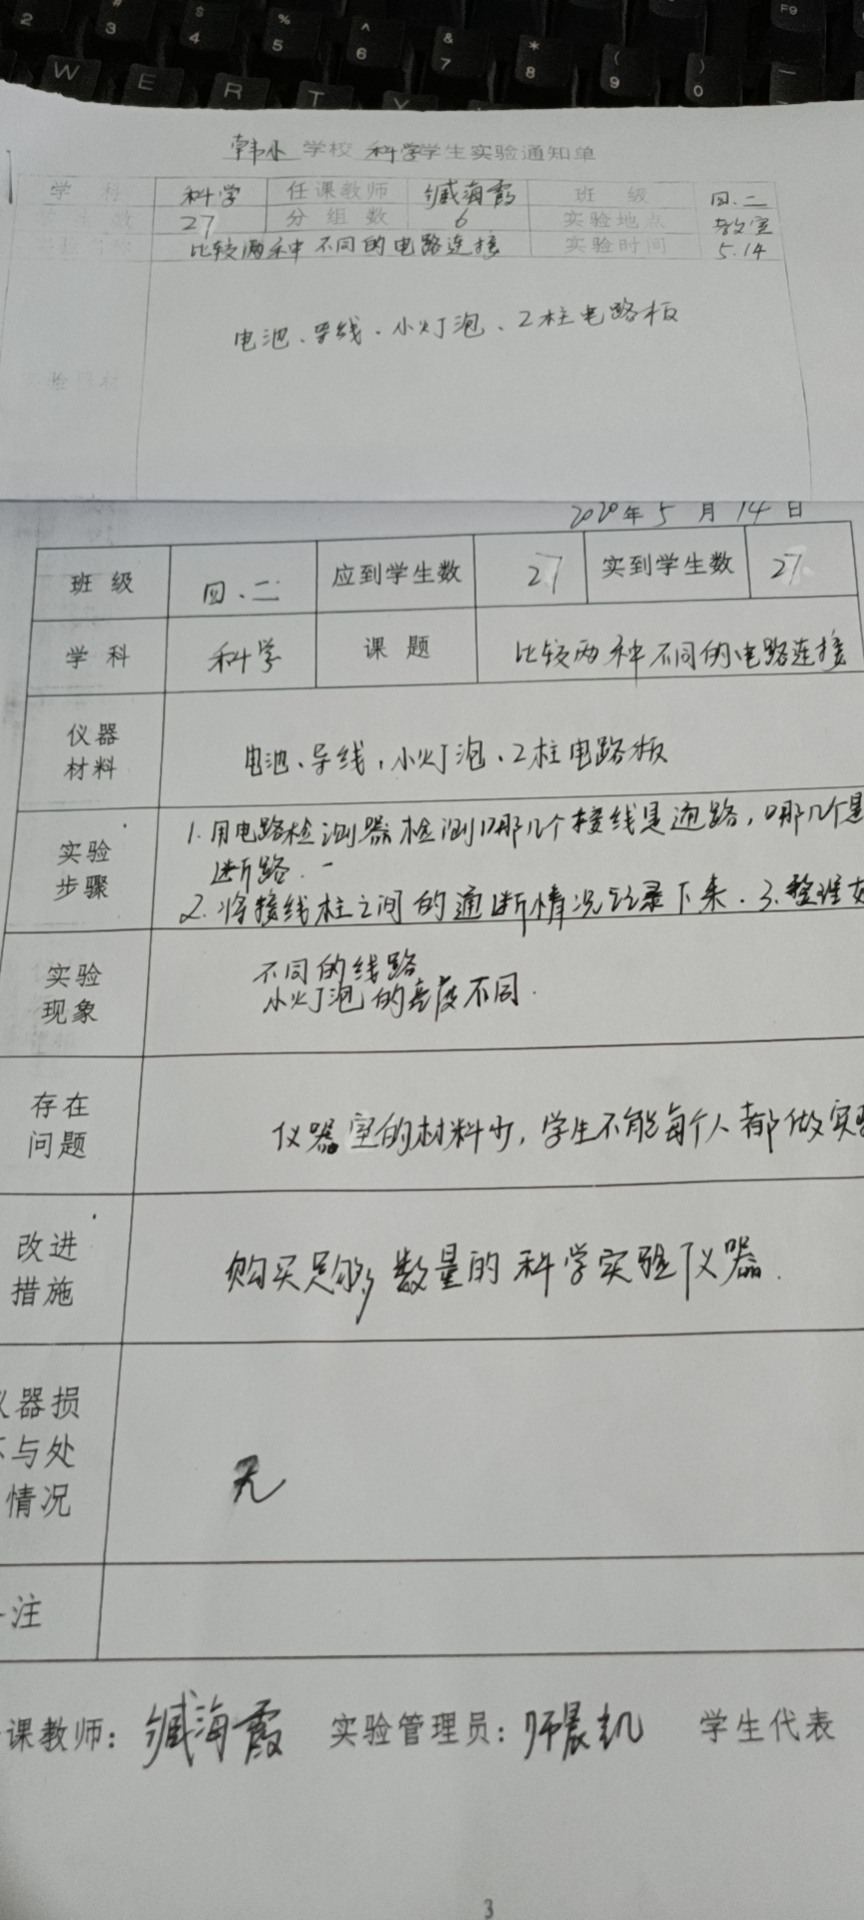 2 3 $ 4 % 5 ^ 6 & 7 * 8 ( 9 ) 0 F9
W E R T Y
韩小 学校 科学 学生实验通知单
学 科 科学 任课教师 臧海霞 班 级 四.二
数 27 分组数 6 实验地点 教室
比较两种不同的电路连接 实验时间 5.14
验器材 电池、导线、小灯泡、2柱电路板
2020年5月14日
班 级 四.二 应到学生数 27 实到学生数 27
学 科 科学 课 题 比较两种不同的电路连接
仪器
材料
电池、导线,小灯泡、2柱电路板
实验
步骤
1.用电路检测器检测哪几个接线是通路,哪几个是
断路.
2.将接线柱之间的通断情况记录下来.3.整理
实验
现象
不同的线路
小灯泡的亮度不同.
存在
问题
仪器室的材料少,学生不能每个人都做实验
改进
措施
购买足够数量的科学实验仪器.
仪器损
坏与处
情况
无
注
课教师: 臧海霞 实验管理员: 学生代表
3